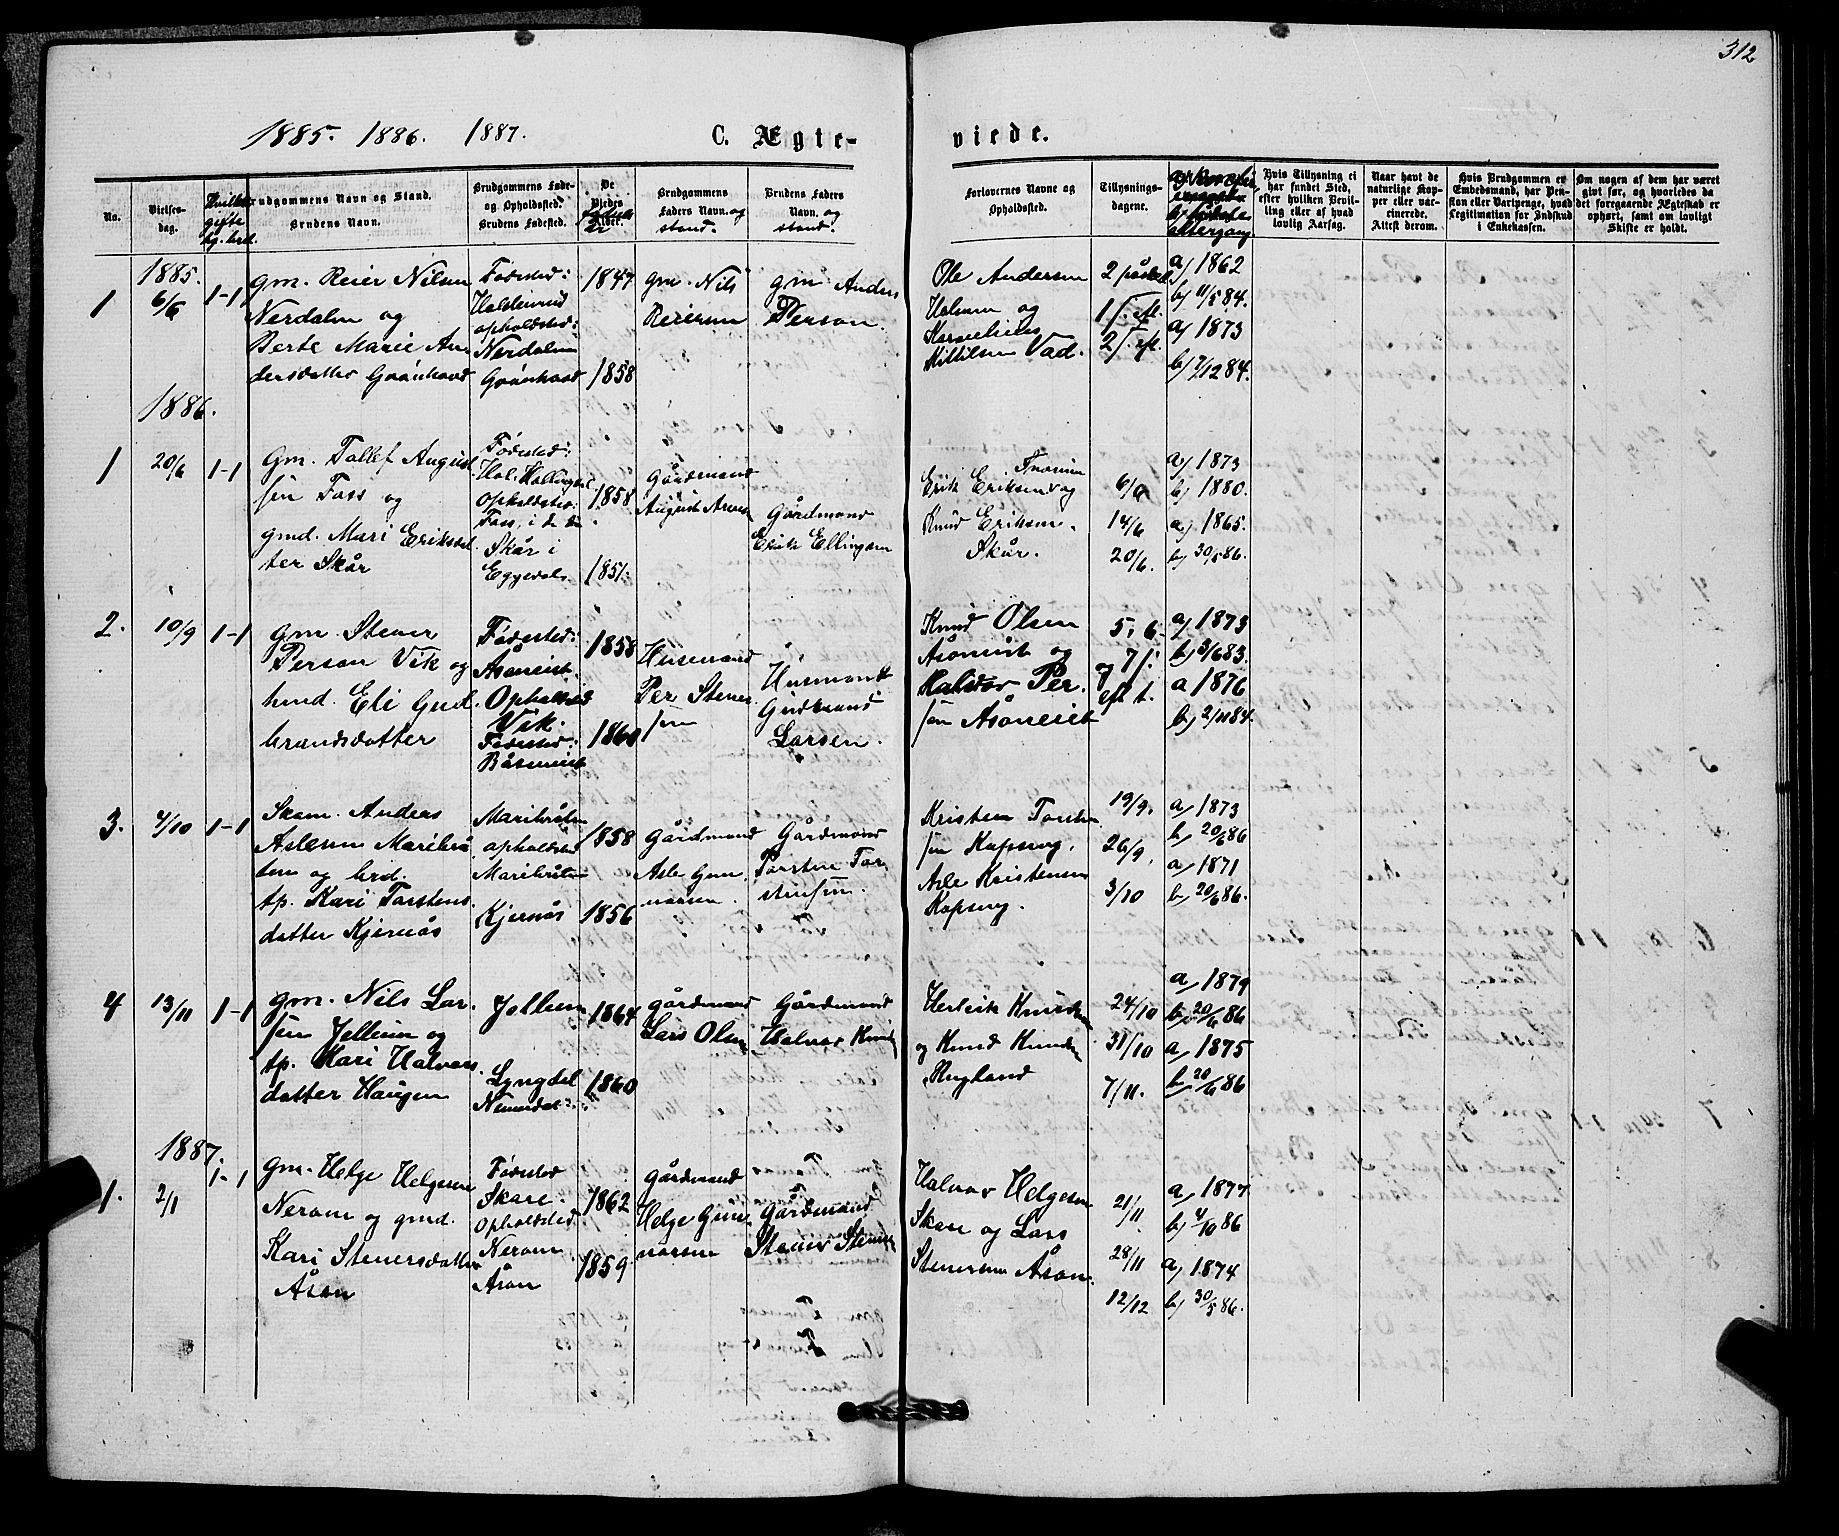 312
1885. 1886. 1887.
C. Ægte-
viede.
No.
Vielses-
dag.
Brudgommens Navn og Stand.
Brudens Navn.
Brudgommens Føde-
og Opholdsted.
Brudens Fødested.
De
Viedes
Brudgommens
Faders Navn. og
stand.
Brudens Faders
Navn. og
stand.
Forlovernes Navne og
Opholdsted.
Tillysnings-
dagene.
Hvis Tillysning ei
har fundet Sted,
efter hvilken Bevil-
ling eller af hvad
lovlig Aarsag.
Naar havt de
naturlige Kop-
per eller vac-
cinerede.
Attest derom.
Hvis Brudgommen er
Embedsmand, har Pen-
sion eller Vartpenge, hvad
Legitimation for Indskud
i Enkekassen.
Om nogen af dem har været
gift før, og hvorledes da
det foregaaende Ægteskab er
ophørt, samt om lovligt
Skifte er holdt.
1885.
1
6/6
1-1
gm. Reier Nilsen
Nerdalen og
Berte Marie An
dersdatter
Fødested:
opholdsted:
Nerdalen
1847
1858
gm. Nils
Reiersen
gm. Anders
Person.
Ole Andersen
og
Vad.
a) 1862
b) 11/5 84.
a) 1873
b) 7/12 84.
1886.
1
20/6
1-1
gm. Tollef August
sen Foss og
gmd. Mari Eriksdat
ter Skår
Fødested:
Opholdsted:
Foss, i
Skår i
Eggedal.
1858.
1851.
Gårdmand
August
Gårdmand
Erik Ellingsen
Erik Eriksen og
Knud Eriksen.
Skår.
6/6
14/6
20/6.
a) 1873
b) 1880.
a) 1865.
b) 30/5 86.
2.
10/9
1-1
gm. Stener
Person Vik og
hmd. Eli Gud
brandsdatter
Fødested:
Opholdsted
Vik.
Fødested:
1858
1860
Husmand
Per Stener
sen
Husmand
Gudbrand
Larsen.
Knud Olsen
og
Halvor Per
sen
5, 6
og 7/.
eft t.
a) 1873
a 1876
b) 2/11 84.
3.
4/10
1-1
Skom. Anders
Aslesen Maribrå
ten og brd.
tp. Kari Torstens
datter Kjernås
Maribråten
opholdsted
Maribråten
Kjernås
1858
1856
Gårdmand
Asle Gun
narsen.
Gårdmand
Torsten Tor
stensen.
Kristen Torsten
sen Kopseng.
Asle Kristensen
Kopseng.
19/9.
26/9.
3/10
a) 1873
b) 20/6 86
a) 1871
b) 20/6 86.
4
13/11
1-1
gm. Nils Lar
sen Jellum og
tp. Kari Halvors
datter Haugen
Jellum
Lyngdal
Numedal
1864
1860
gårdmand
Lars Olsen
Gårdmand
Halvor Knud
Herbrik Knudsen
og Knud Knudsen
Rugland
24/10
31/10
7/11.
a) 1879
b) 20/6 86
a) 1875
b) 20/6 86
1887.
1.
2/1
1-1
gm. Helge Helgesen
Nerom og gmd.
Kari Stenersdatter
Åsen
Fødested
Skare.
Opholdsted
Nerom
Åsen
1862
1859
gårdmand
Helge Gun
narsen
Gårdmand
Stener Stener
Halvor Helgesen
Skare og Lars
Stenersen Åsen
21/11
28/11
12/12
a) 1877
b) 4/10 86
a) 1874
b) 30/5 86.